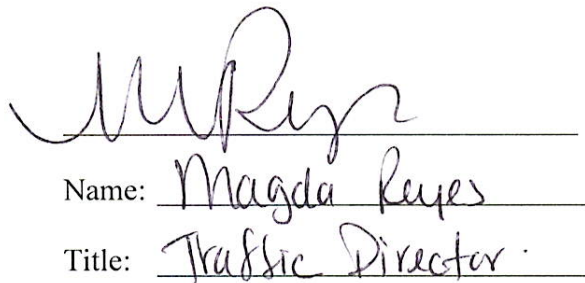 MReyes
Name: Magda Reyes
Title: Traffic Director.